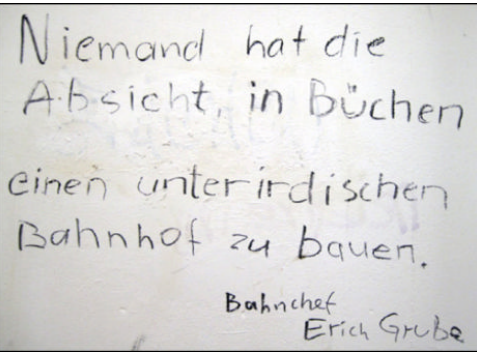 Niemand hat die
Absicht, in Büchen
einen unterirdischen
Bahnhof zu bauen.
Bahnchef
Erich Grube